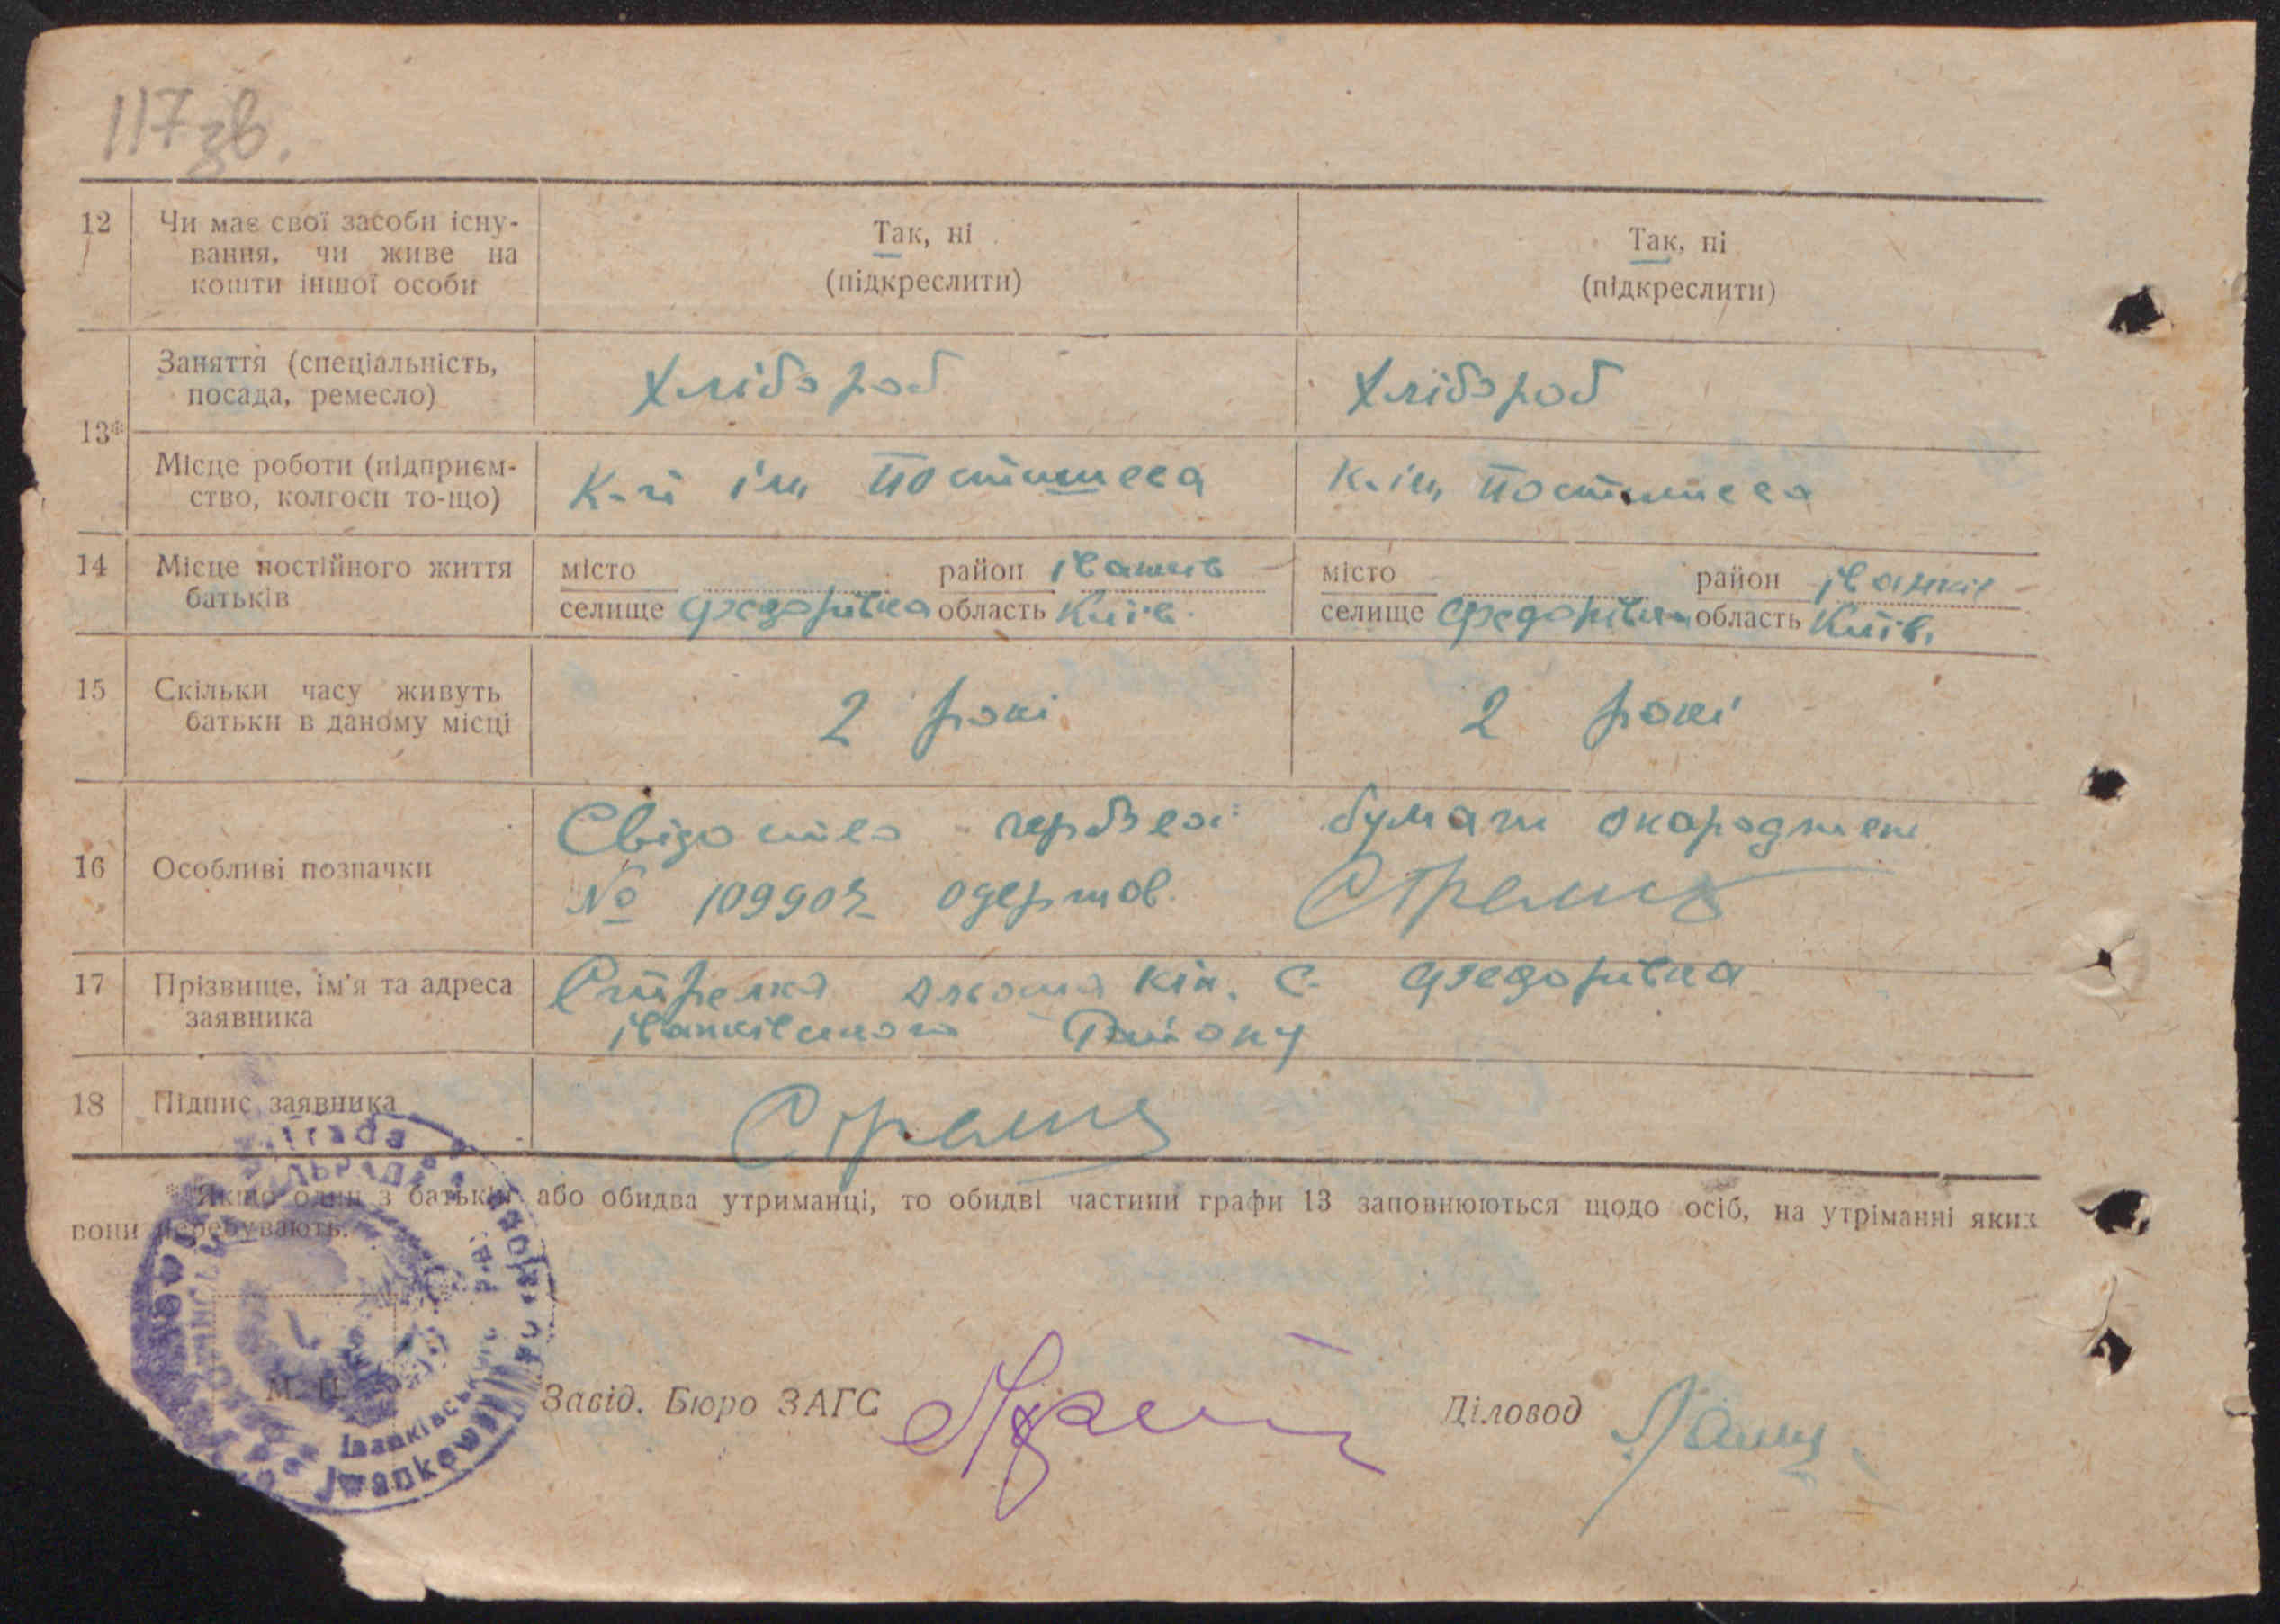 117 зв.
12 Чи має свої засоби існу-
вання, чи живе на
кошти іншої особи
Так, ні
(підкреслити)
Так, ні
(підкреслити)
13*
Заняття (спеціальність,
посада, ремесло)
Хлібороб
Хлібороб
Місце роботи (підприєм-
ство, колгосп то-що)
К-п ім Постишева
К. ім, Постишева
14 Місце постійного життя
батьків
місто район іванків
селище Федорівка область Київ.
місто район іванків
селище Федорівка область Київ.
15 Скільки часу живуть
батьки в даному місці
2 рокі
2 рокі
16 Особливі позначки
Свідоцтво гербової бумаги
№ 109902 одержав.
17 Прізвище, ім'я та адреса
заявника
с. Федорівка
іванківського Району
18 Підпис заявника
* Якщо один з батьків або обидва утриманці, то обидві частини графи 13 заповнюються щодо осіб, на утріманні яких
вони перебувають.
М. П.
Завід. Бюро ЗАГС
Діловод